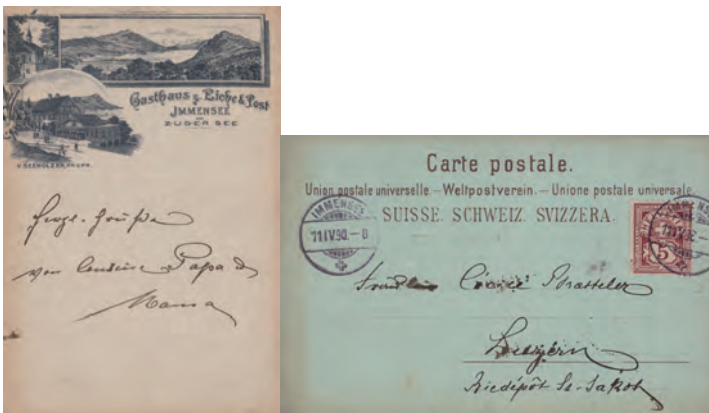 Gasthaus z. Eiche & Post
IMMENSEE
AM
ZUGER SEE
V. SEEHOLZER, PROPR.
Herzl. Grüße
von Papa &
Mama
Carte postale.
Union postale universelle. — Weltpostverein. — Unione postale universale.
SUISSE. SCHWEIZ. SVIZZERA.
IMMENSEE
11 IV 90.—8
5
Fräulein
Luzern
St. Jakob.